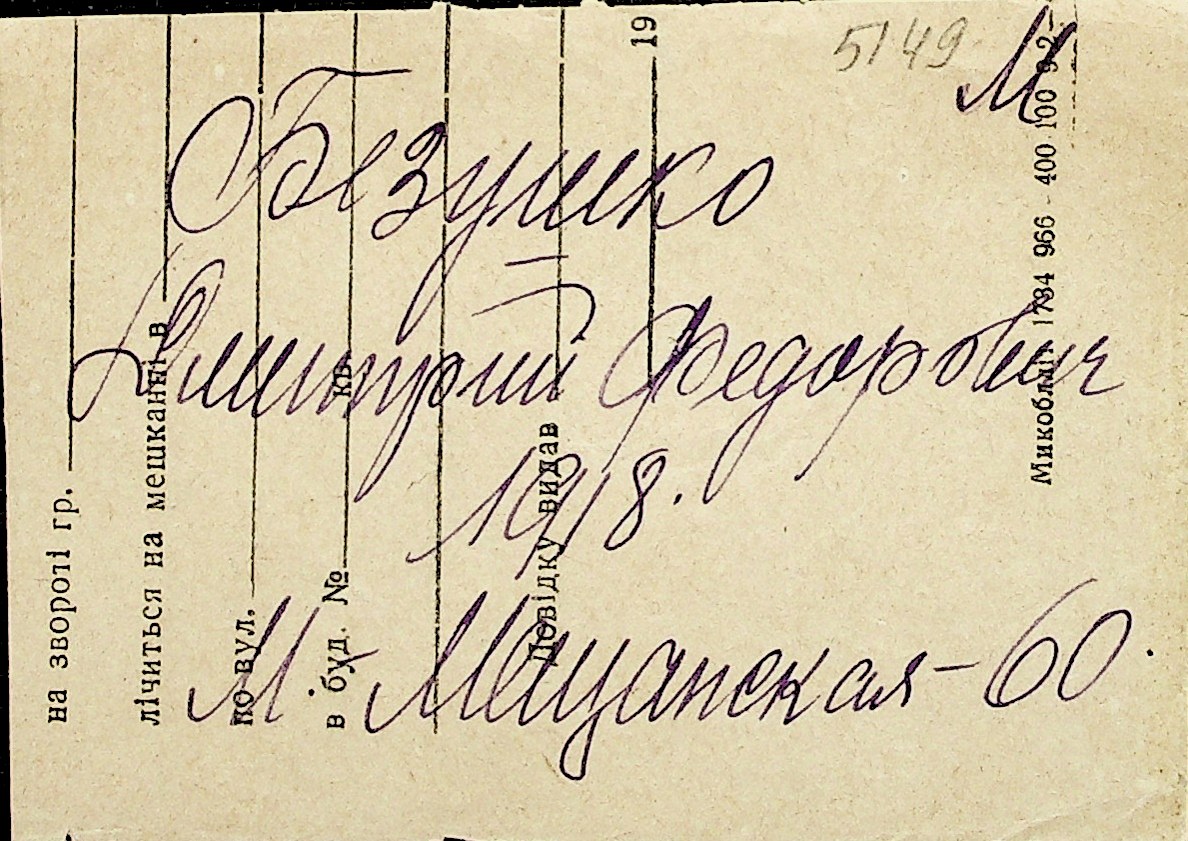 5149
М
Безушко
Дмитрий Федорович
1918.
М-Мещанская-60.
на звороті гр.
лічиться на мешканні в
по вул.
в буд. № кв
Довідку видав 19
1784 966 - 400 100 9 2